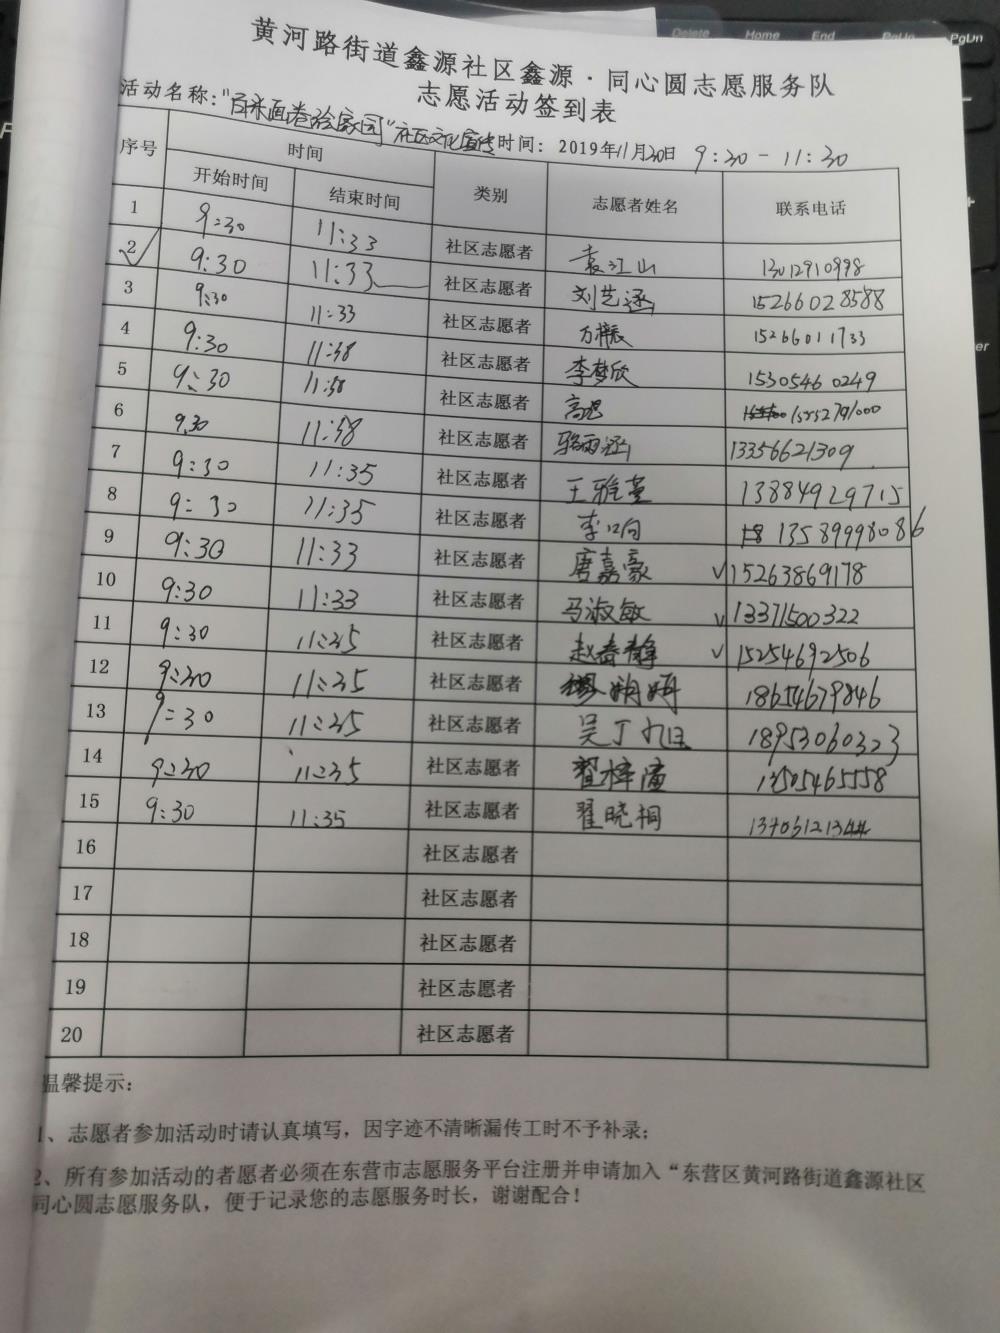 Delete Home End PgUp PgUn
黄河路街道鑫源社区鑫源·同心圆志愿服务队
志愿活动签到表
活动名称:"百米画卷绘家园"社区文化宣传 时间: 2019年11月30日 9:30-11:30
序号 时间 类别 志愿者姓名 联系电话
开始时间 结束时间
1 9:30 11:33 社区志愿者 袁江山 13012910998
2 9:30 11:33 社区志愿者 刘艺涵 15266028588
3 9:30 11:33 社区志愿者 15266011733
4 9:30 11:38 社区志愿者 李梦欣 15305460249
5 9:30 11:38 社区志愿者 高焜
6 9:30 11:38 社区志愿者 骆雨涵 13356621309
7 9:30 11:35 社区志愿者 王雅萱 13884929715
8 9:30 11:35 社区志愿者 李沁向 13589998086
9 9:30 11:33 社区志愿者 唐嘉豪 15263869178
10 9:30 11:33 社区志愿者 马淑敏 13371500322
11 9:30 11:35 社区志愿者 赵春静 15254692506
12 9:30 11:35 社区志愿者 18654679846
13 9:30 11:35 社区志愿者 吴丁旭 18953060323
14 9:30 11:35 社区志愿者 翟梓潼 13505465558
15 9:30 11:35 社区志愿者 翟晓桐 13706121344
16 社区志愿者
17 社区志愿者
18 社区志愿者
19 社区志愿者
20 社区志愿者
温馨提示:
1、志愿者参加活动时请认真填写,因字迹不清晰漏传工时不予补录;
2、所有参加活动的者愿者必须在东营市志愿服务平台注册并申请加入"东营区黄河路街道鑫源社区
同心圆志愿服务队,便于记录您的志愿服务时长,谢谢配合!